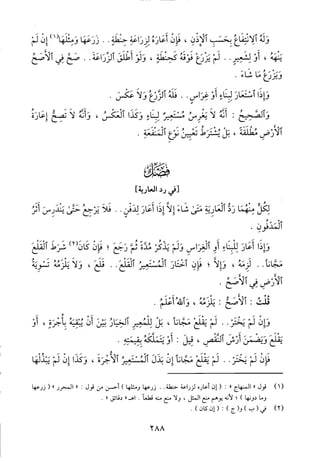 وَلَهُ ٱلِانْتِفَاعُ بِحَسَبِ ٱلْإِذْنِ ، فَإِنْ أَعَارَهُ لِزِرَاعَةِ حِنْطَةٍ .. زَرَعَهَا وَمِثْلَهَا(١) إِنْ لَمْ
يَنْهَهُ ، أَوْ لِشَعِيرٍ .. لَمْ يَزْرَعْ فَوْقَهُ كَحِنْطَةٍ ، وَلَوْ أَطْلَقَ ٱلزِّرَاعَةَ .. صَحَّ فِي ٱلْأَصَحِّ
وَيَزْرَعُ مَا شَاءَ .
وَإِذَا ٱسْتَعَارَ لِبِنَاءٍ أَوْ غِرَاسٍ .. فَلَهُ ٱلزَّرْعُ وَلَا عَكْسَ .
وَٱلصَّحِيحُ : أَنَّهُ لَا يَغْرِسُ مُسْتَعِيرٌ لِبِنَاءٍ وَكَذَا ٱلْعَكْسُ ، وَأَنَّهُ لَا تَصِحُّ إِعَارَةُ
ٱلْأَرْضِ مُطْلَقَةً ، بَلْ يُشْتَرَطُ تَعْيِينُ نَوْعِ ٱلْمَنْفَعَةِ .
فَصْلٌ
[في رد العارية]
لِكُلٍّ مِنْهُمَا رَدُّ ٱلْعَارِيَةِ مَتَىٰ شَاءَ إِلَّا إِذَا أَعَارَ لِدَفْنٍ .. فَلَا يَرْجِعُ حَتَّىٰ يَنْدَرِسَ أَثَرُ
ٱلْمَدْفُونِ .
وَإِذَا أَعَارَ لِلْبِنَاءِ أَوِ ٱلْغِرَاسِ وَلَمْ يَذْكُرْ مُدَّةً ثُمَّ رَجَعَ ؛ فَإِنْ كَانَ(٢) شَرَطَ ٱلْقَلْعَ
مَجَّاناً .. لَزِمَهُ ، وَإِلَّا ؛ فَإِنِ ٱخْتَارَ ٱلْمُسْتَعِيرُ ٱلْقَلْعَ .. قَلَعَ ، وَلَا يَلْزَمُهُ تَسْوِيَةُ
ٱلْأَرْضِ فِي ٱلْأَصَحِّ .
قُلْتُ : ٱلْأَصَحُّ : يَلْزَمُهُ ، وَٱللهُ أَعْلَمُ .
وَإِنْ لَمْ يَخْتَرْ .. لَمْ يَقْلَعْ مَجَّاناً ، بَلْ لِلْمُعِيرِ ٱلْخِيَارُ بَيْنَ أَنْ يُبْقِيَهُ بِأُجْرَةٍ ، أَوْ
يَقْلَعَ وَيَضْمَنَ أَرْشَ ٱلنَّقْصِ ، قِيلَ : أَوْ يَتَمَلَّكَهُ بِقِيمَتِهِ .
فَإِنْ لَمْ يَخْتَرْ .. لَمْ يَقْلَعْ مَجَّاناً إِنْ بَذَلَ ٱلْمُسْتَعِيرُ ٱلْأُجْرَةَ ، وَكَذَا إِنْ لَمْ يَبْذُلْهَا
(١) قول « المنهاج » : ( إن أعاره لزراعة حنطة .. زرعها ومثلها ) أحسن من قول : « المحرر » ( زرعها
وما دونها ) ؛ لأنه يوهم منع المثل ، ولا منع منه قطعاً . اهـ « دقائق » .
(٢) في ( ب ) و( ج ) : ( إن كان ) .
٢٨٨